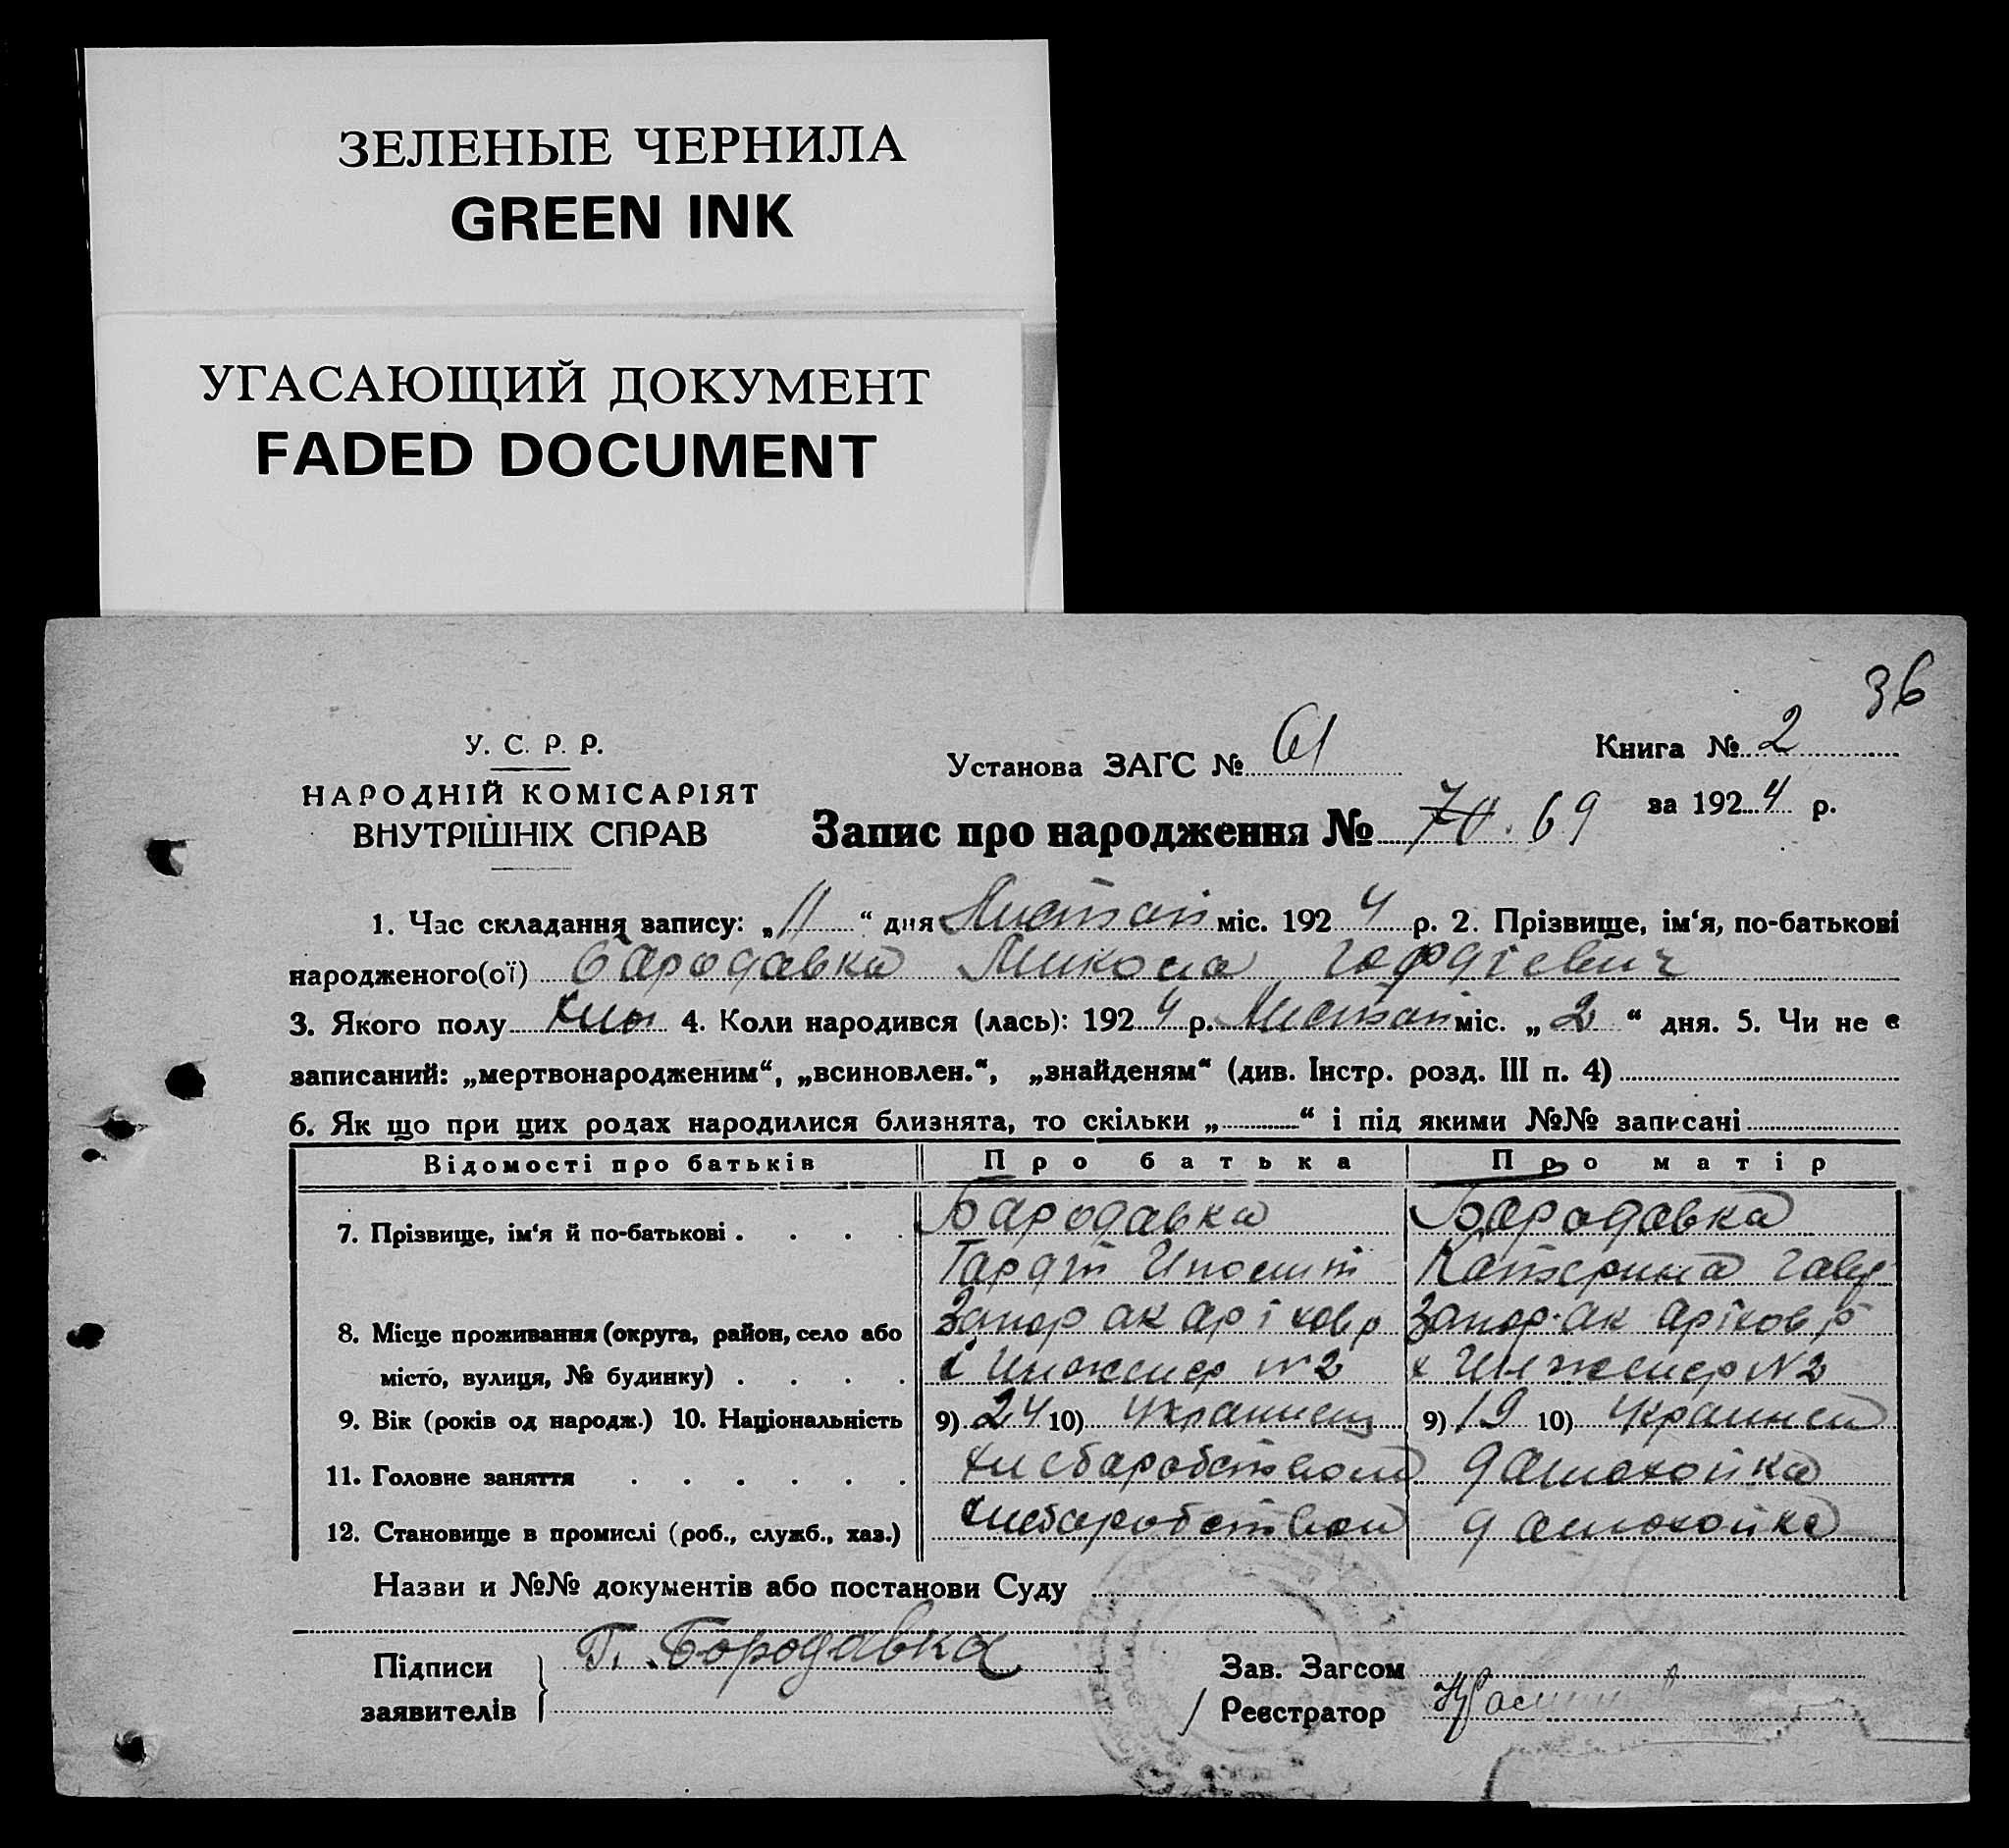 ЗЕЛЕНЫЕ ЧЕРНИЛА
GREEN INK
УГАСАЮЩИЙ ДОКУМЕНТ
FADED DOCUMENT
36
У. С. Р. Р.
НАРОДНІЙ КОМІСАРІЯТ
ВНУТРІШНІХ СПРАВ
Установа ЗАГС № 61
Книга № 2
Запис про народження № 70. 69
за 1924 р.
1. Час складання запису: „11“ дня Листоп міс. 1924 р. 2. Прізвище, ім‘я, по-батькові
народженого(ої) Бародавка Микола Гордієвич
3. Якого полу 4. Коли народився (лась): 1924 р. Листоп міс. „2“ дня. 5. Чи не є
записаний: „мертвонародженим“, „всиновлен.“, „знайденям“ (див. Інстр. розд. III п. 4)
6. Як що при цих родах народилися близнята, то скільки „ “ і під якими №№ записані
Відомості про батьків Про батька Про матір
7. Прізвище, ім‘я й по-батькові . . . . Бародавка Бародавка
Гардій Катерина
8. Місце проживання (округа, район, село або Запор ак аріхов р Запор. ак аріхов р
місто, вулиця, № будинку) . . . . Инженер №2 х Инженер №2
9. Вік (років од народж.) 10. Національність 9) 24 10) Украинец 9) 19 10)
11. Головне заняття . . . . . . хлебаробством дамохойка
12. Становище в промислі (роб., служб., хаз.) хлебаробством дамохойка
Назви и №№ документів або постанови Суду
Підписи
заявителів
Г. Бородавка
Зав. Загсом
Реєстратор